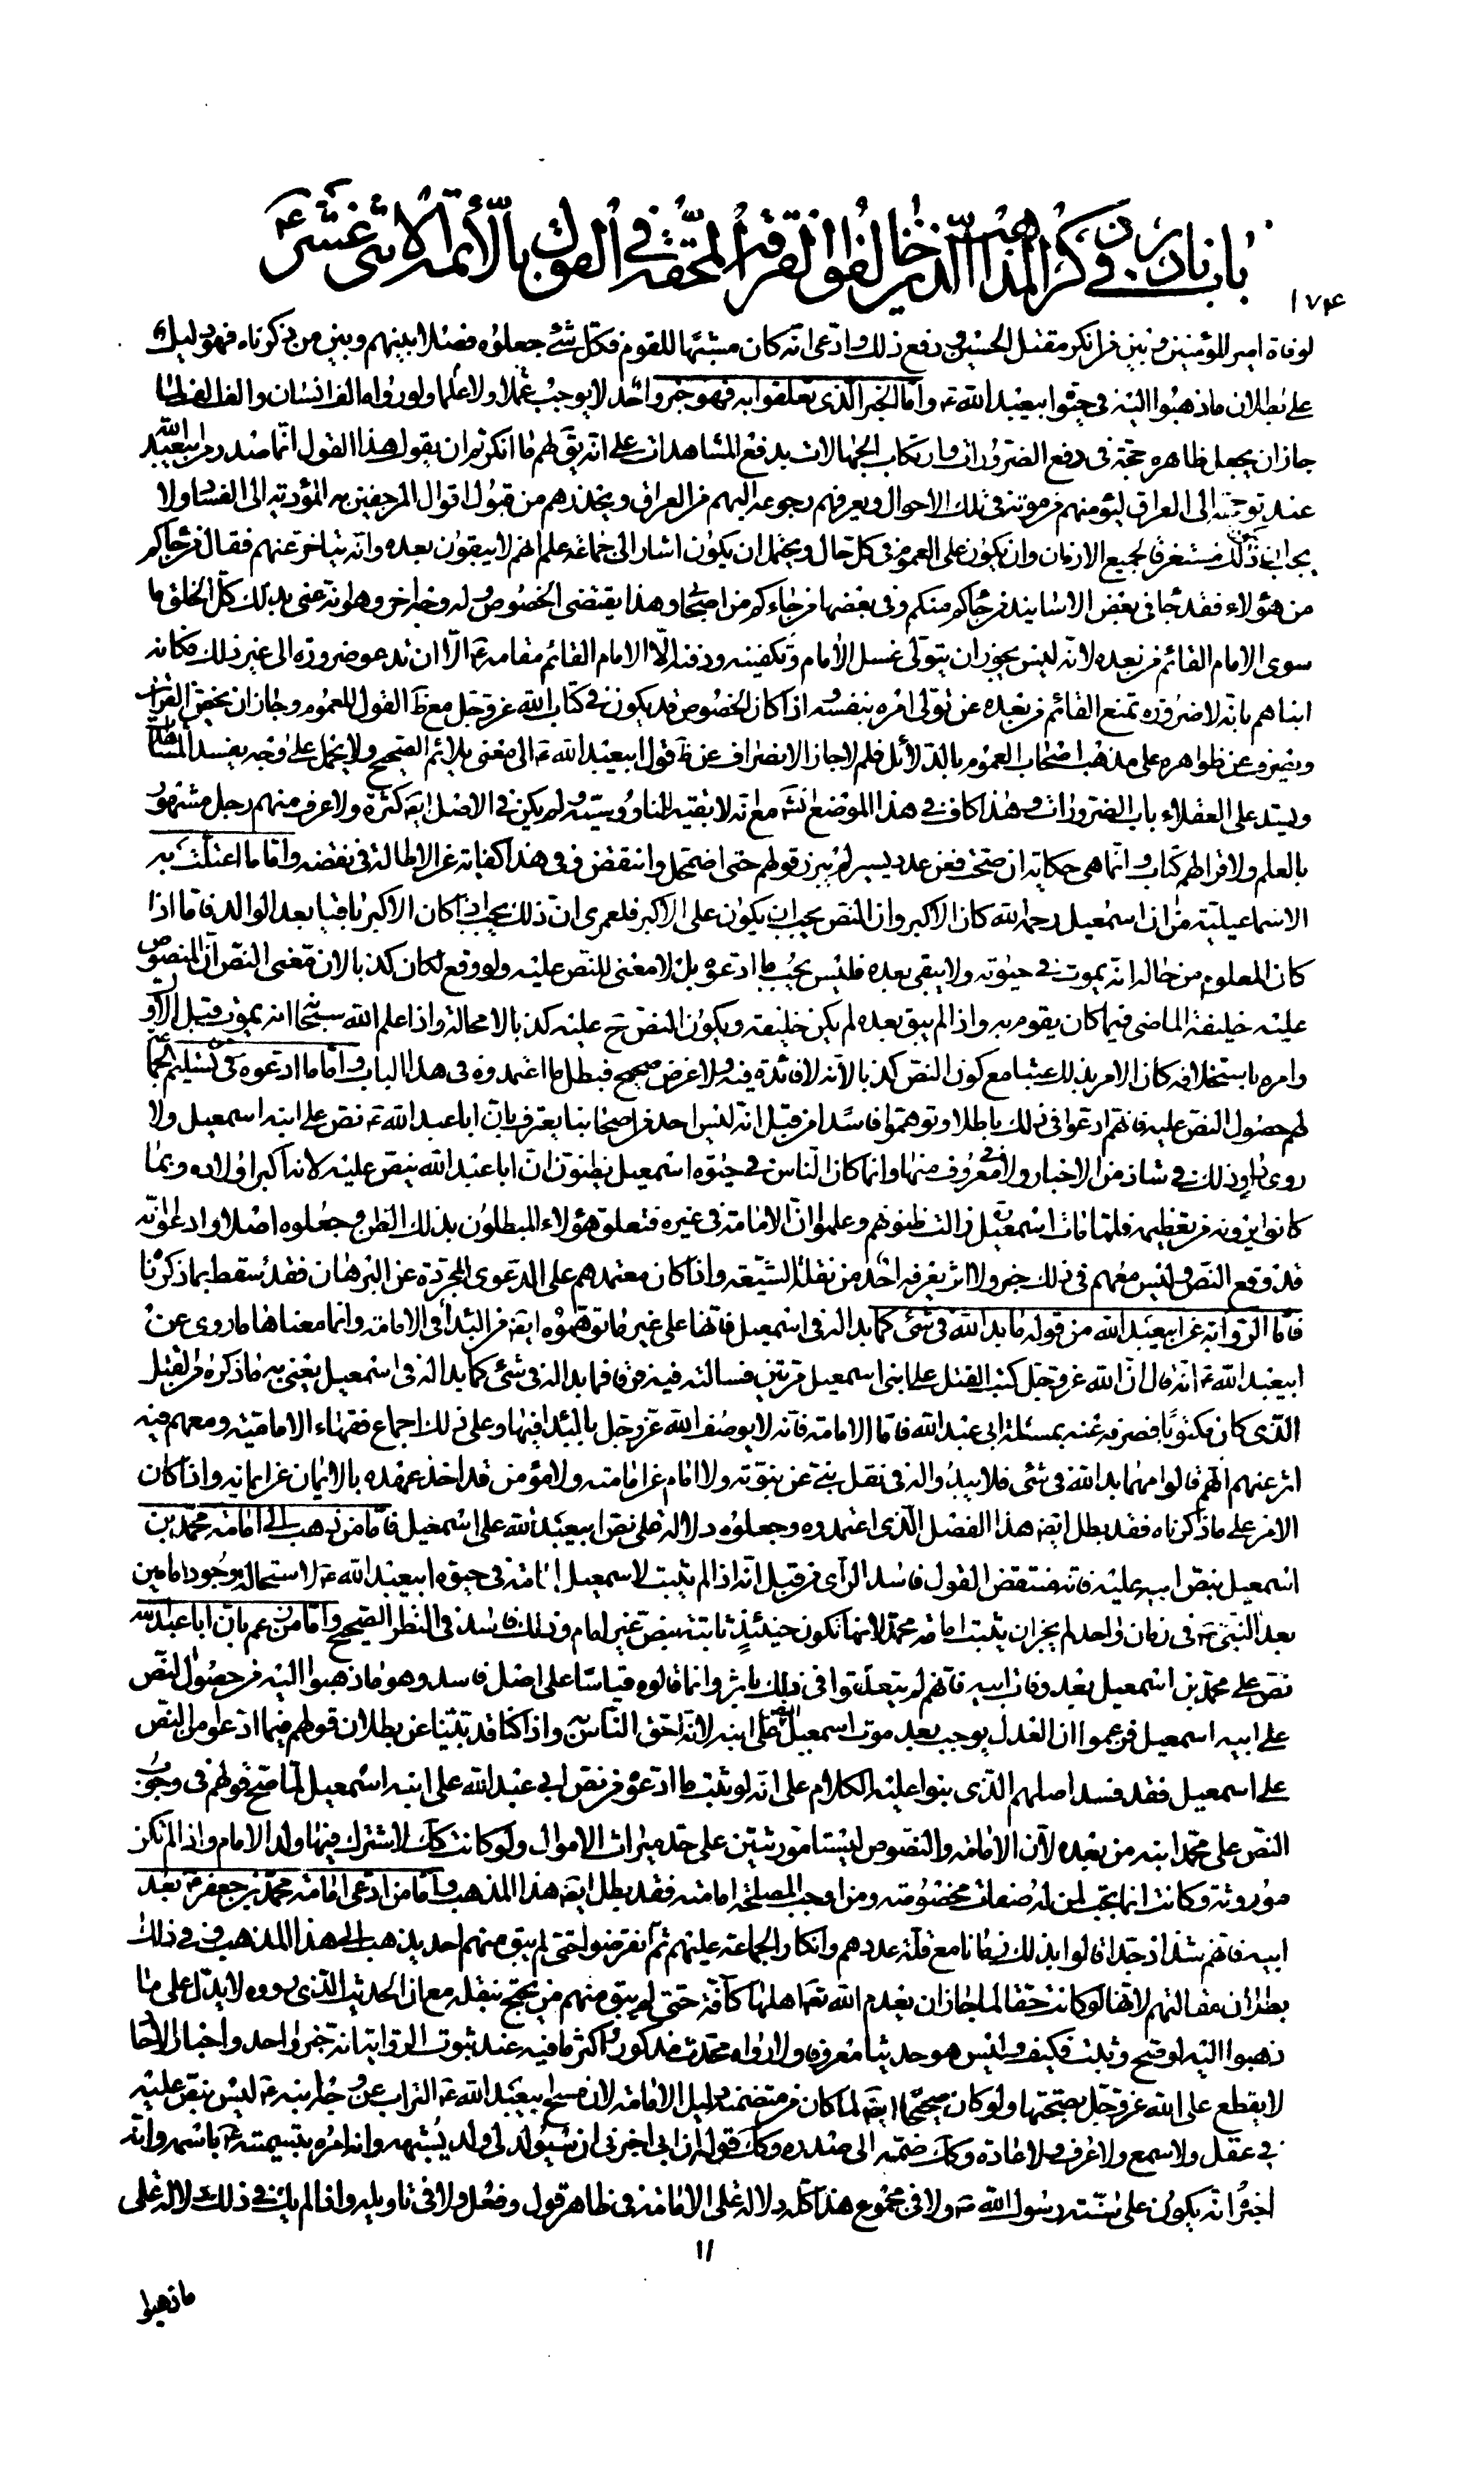 باب نادر في ذكر المذاهب الذين خالفوا الفرقة المحقة في القول بالأئمة الاثني عشر ع
١٧٤
لوفاة امير المؤمنين و بين من انكر مقتل الحسين و دفع ذلك و ادعى انه كان مشبها للقوم فكل شئ جعلوه فضلا بينهم و بين من ذكرناه فهو دليل
على بطلان ما ذهبوا اليه في حيوة ابيعبد الله ع و اما الخبر الذي تعلقوا به فهو خبر واحد لا يوجب عملا و لا علما و لو رواه الف انسان و الف الف لما
جاز ان يجعل ظاهره حجة في دفع الضرورات و ارتكاب الجهالات بدفع المشاهدات على انه يق لهم ما انكرتم ان يقول هذا القول انما صدر من ابيعبد الله
عند توجهه الى العراق ليؤمنهم من موته في تلك الاحوال و يعرفهم رجوعه اليهم من العراق و يحذرهم من قبول اقوال المرجفين به المؤدية الى الفساد و لا
يجب ان يكون ذلك مستغرقا لجميع الازمان و ان يكون على العموم في كل حال و يحتمل ان يكون اشار الى جماعة علم انهم لا يبقون بعده و انه يتاخر عنهم فقال من جاءكم
من هؤلاء فقد جا في بعض الاسانيد من جاكم منكم و في بعضها من جاءكم من اصحابي و هذا يقتضي الخصوص و له وجه اخر و هو انه عنى بذلك كل الخلق ما
سوى الامام القائم من بعده لانه ليس يجوز ان يتولى غسل الامام و تكفينه و دفنه الا الامام القائم مقامه ع الا ان تدعو ضرورة الى غير ذلك فكانه
انباهم بانه لا ضرورة تمنع القائم من بعده عن تولى امره بنفسه اذا كان الخصوص قد يكون في كتاب الله عز و جل مع ظ القول للعموم و جاز ان يخص القران
و يصرف عن ظواهره على مذهب اصحاب العموم بالدلائل فلم لا جاز الانصراف عن ظ قول ابيعبد الله ع الى معنى يلائم الصحيح و لا يحمل على وجه يفسد المشاهدات
و يسد على العقلاء باب الضرورات و هذا كاف في هذا الموضع انشه مع انه لا بقية للناووسية و لم يكن في الاصل ايضه كثرة و لا عرف منهم رجل مشهور
بالعلم و لا قرا لهم كتاب و انما هي حكاية ان صحت فعن عدد يسير لم يبرز قولهم حتى اضمحل و انتقض و في هذا كفاية عن الاطالة في نقضه و اما ما اعتلت به
الاسماعيلية من ان اسمعيل رحمه الله كان الاكبر و ان النص يجب ان يكون على الاكبر فلعمري ان ذلك يجب اذا كان الاكبر باقيا بعد الوالد فاما اذا
كان المعلوم من حاله انه يموت في حيوته و لا يبقى بعده فليس يجب ما ادعوه بل لا معنى للنص عليه و لو وقع لكان كذبا لان معنى النص ان المنصوص
عليه خليفة الماضي فيما كان يقوم به و اذا لم يبق بعده لم يكن خليفته و يكون النص ح عليه كذبا لا محالة و اذا علم الله سبحانه انه يموت قبل الاول
و امره باستخلافه كان الامر بذلك عبثا مع كون النص كذبا لانه لا فائدة فيه و لا غرض صحيح فبطل ما اعتمدوه في هذا الباب و اما ما ادعوه من تسليم الجماعة
لهم حصول النص عليه فانهم ادعوا في ذلك باطلا و توهموا فاسدا من قبل انه ليس احد من اصحابنا يعترف بان ابا عبد الله ع نص على ابنه اسمعيل و لا
روى راو ذلك في شاذ من الاخبار و لا في معروف منها و انما كان الناس في حيوة اسمعيل يظنون ان ابا عبد الله ينص عليه لانه اكبر اولاده و بما
كانوا يرونه من تعظيمه فلما مات اسمعيل زالت ظنونهم و علموا ان الامامة في غيره فتعلق هؤلاء المبطلون بذلك الظن و جعلوه اصلا و ادعوا انه
قد وقع النص و ليس معهم في ذلك خبر و لا اثر يعرفه احد من نقلة الشيعة و اذا كان معتمدهم على الدعوى المجردة عن البرهان فقد سقط بما ذكرنا
فاما الرواية عن ابيعبد الله من قوله ما بدا لله في شئ كما بدا له في اسمعيل فانها على غير ما توهموه ايضه من البداء في الامامة و انما معناها ما روى عن
ابيعبد الله ع انه قال ان الله عز و جل كتب القتل على ابني اسمعيل مرتين فسالته فيه فرقا فما بدا له في شئ كما بدا له في اسمعيل يعني به ما ذكره من القتل
الذي كان مكتوبا فصرفه عنه بمسئلة ابي عبد الله فاما الامامة فانه لا يوصف الله عز و جل بالبداء فيها و على ذلك اجماع فقهاء الامامية و معهم فيه
اثر عنهم انهم قالوا مهما بدا لله في شئ فلا يبدو له في نقل نبي عن نبوته و لا امام عن امامته و لا مؤمن قد اخذ عهده بالايمان عن ايمانه و اذا كان
الامر على ما ذكرناه فقد بطل ايضه هذا الفصل الذي اعتمدوه و جعلوه دلالة على نص ابيعبد الله على اسمعيل فاما من ذهب الى امامة محمد بن
اسمعيل بنص ابيه عليه فانه منتقض القول فاسد الرأي من قبل انه اذا لم يثبت لاسمعيل امامة في حيوة ابيعبد الله ع لاستحالة وجود امامين
بعد النبي ص في زمان واحد لم يجز ان يثبت امامة محمد لانها تكون حينئذ ثابتة بنص غير امام و ذلك فاسد في النظر الصحيح و اما من زعم بان ابا عبد الله
نص على محمد بن اسمعيل بعد وفات ابيه فانهم لم يتعلقوا في ذلك باثر و انما قالوه قياسا على اصل فاسد و هو ما ذهبوا اليه من حصول النص
على ابيه اسمعيل فزعموا ان العدل يوجب بعد موت اسمعيل النص على ابنه لانه احق الناس به و اذا كنا قد بينا عن بطلان قولهم فيما ادعوا من النص
على اسمعيل فقد فسد اصلهم الذي بنوا عليه الكلام على انه لو ثبت ما ادعوه من نص ابي عبد الله على ابنه اسمعيل لما صح قولهم في وجوب
النص على محمد ابنه من بعده لان الامامة و النصوص ليستا موروثتين على حد ميراث الاموال و لو كانت كك لاشترك فيها ولد الامام و اذا لم تكن
موروثة و كانت انما تجب لمن له صفات مخصوصة و من اوجب المصلحة امامته فقد بطل ايضه هذا المذهب و اما من ادعى امامة محمد بن جعفر ع بعد
ابيه فانهم شذاذ جدا قالوا بذلك زمانا مع قلة عددهم و انكار الجماعة عليهم ثم انقرضوا حتى لم يبق منهم احد يذهب الى هذا المذهب و في ذلك
بطلان مقالتهم لانها لو كانت حقا لما جاز ان يعدم الله تعا اهلها كافة حتى لم يبق منهم من يحتج بنقله مع ان الحديث الذي رووه لا يدل على ما
ذهبوا اليه لو صح و ثبت فكيف و ليس هو حديثا معروفا و لا رواه محدث مذكور و اكثر ما فيه عند ثبوت الرواية انه خبر واحد و اخبار الاحاد
لا يقطع على الله عز و جل بصحتها و لو كان صحيحا ايضه لما كان من متضمنه دليل الامامة لان مسح ابيعبد الله ع التراب عن وجه ابنه ع ليس بنص عليه
في عقل و لا سمع و لا عرف و لا عادة و كك ضمه الى صدره و كك قوله ان ابي اخبرني ان سيولد لي ولد يشبهه و انه امره بتسميته باسمه و انه
اخبره انه يكون على سنة رسول الله ص و لا في مجموع هذا كله دلالة على الامامة في ظاهر قول و فعل و لا في تاويله و اذا لم يك في ذلك دلالة على
١١
ما ذهبوا